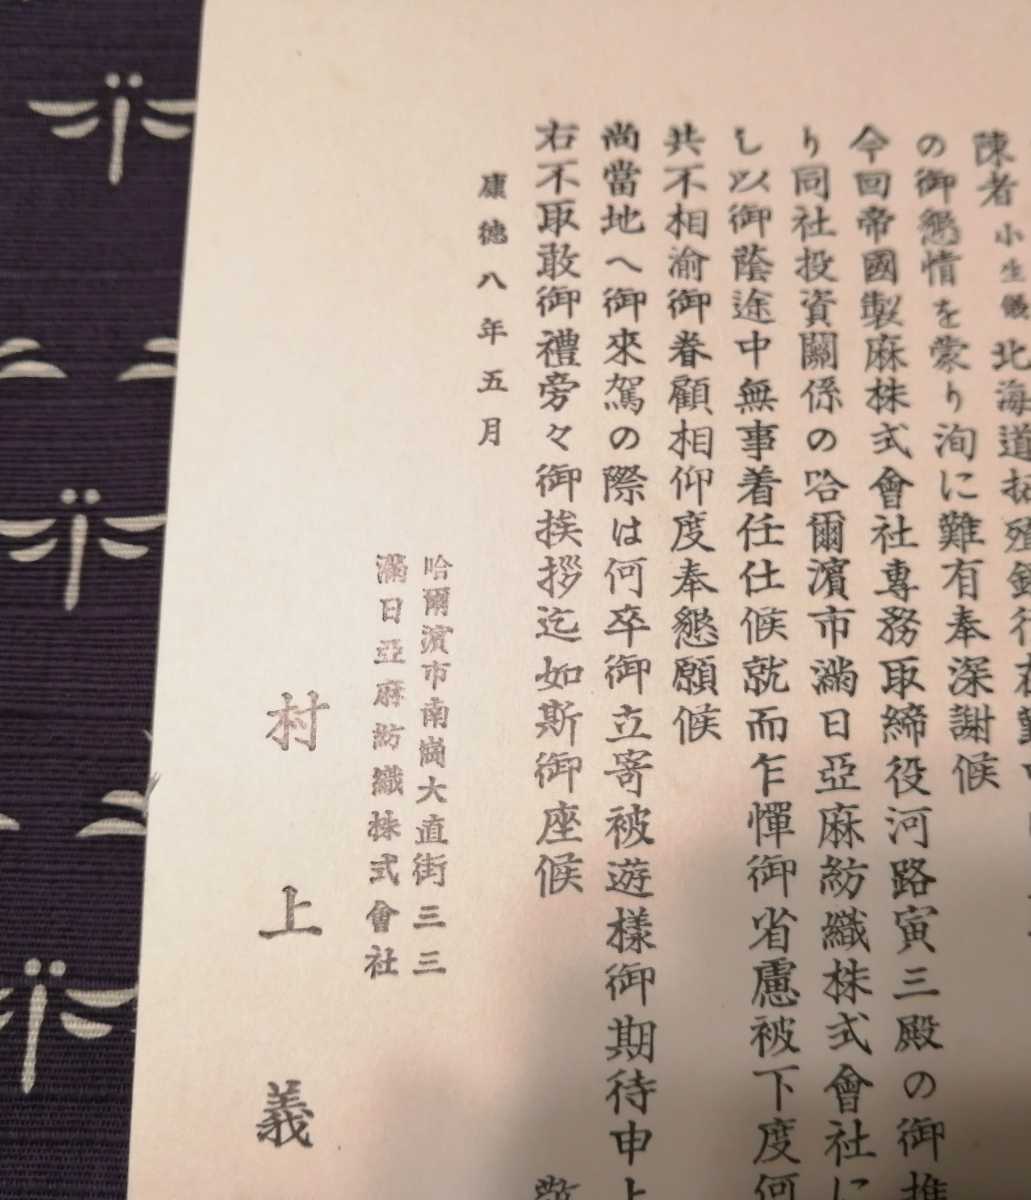 陳者小生儀北海道拓殖銀行在勤中
の御懇情を蒙り洵に難有奉深謝候
今回帝國製麻株式會社專務取締役河路寅三殿の御推
り同社投資關係の哈爾濱市滿日亞麻紡織株式會社に
し以御蔭途中無事着任仕候就而乍憚御省慮被下度何
共不相渝御眷顧相仰度奉懇願候
尚當地へ御來駕の際は何卒御立寄被遊樣御期待申上
右不取敢御禮旁々御挨拶迄如斯御座候
敬
康德八年五月
哈爾濱市南崗大直街三三
滿日亞麻紡織株式會社
村上義